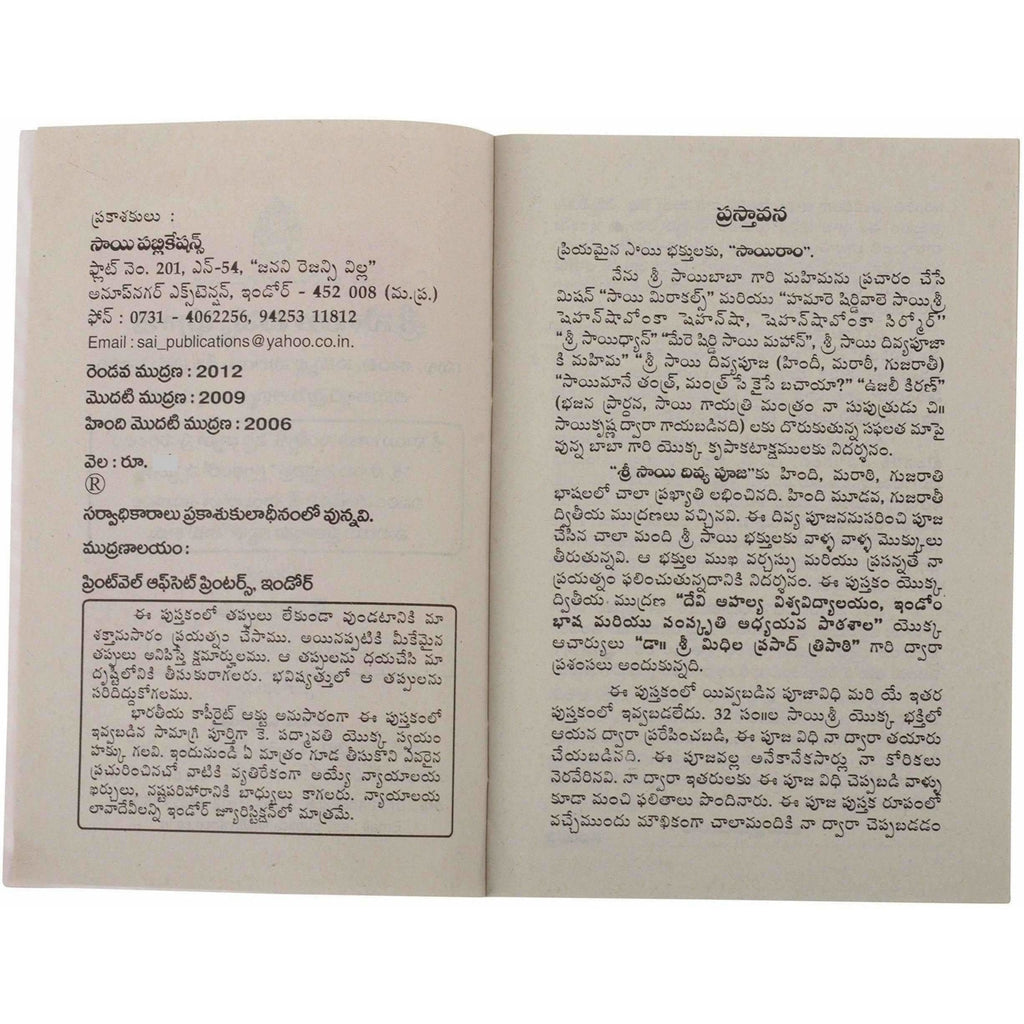 ప్రకాశకులు :
సాయి పబ్లికేషన్స్
ఫ్లాట్ నెం. 201, ఎన్-54, “జనని రెజన్సి విల్ల”
అనూప్‌నగర్ ఎక్స్‌టెన్షన్, ఇండోర్ - 452 008 (మ.ప్ర.)
ఫోన్ : 0731 - 4062256, 94253 11812
Email : sai_publications@yahoo.co.in.
రెండవ ముద్రణ : 2012
మొదటి ముద్రణ : 2009
హింది మొదటి ముద్రణ : 2006
వెల : రూ.
®
సర్వాధికారాలు ప్రకాశుకులాధీనంలో వున్నవి.
ముద్రణాలయం :
ప్రింట్‌వెల్ ఆఫ్‌సెట్ ప్రింటర్స్, ఇండోర్
ఈ పుస్తకంలో తప్పులు లేకుండా వుండటానికి మా
శక్తానుసారం ప్రయత్నం చేసాము. అయినప్పటికి మీకేమైన
తప్పులు అనిపిస్తే క్షమార్హులము. ఆ తప్పులను దయచేసి మా
దృష్టిలోనికి తీసుకురాగలరు. భవిష్యత్తులో ఆ తప్పులను
సరిదిద్దుకోగలము.
భారతీయ కాపీరైట్ ఆక్టు అనుసారంగా ఈ పుస్తకంలో
ఇవ్వబడిన సామాగ్రి పూర్తిగా కె. పద్మావతి యొక్క స్వయం
హక్కు గలవి. ఇందునుండి ఏ మాత్రం గూడ తీసుకొని ఏవరైన
ప్రచురించినచో వాటికి వ్యతిరేకంగా అయ్యే న్యాయాలయ
ఖర్చులు, నష్టపరిహారానికి బాధ్యులు కాగలరు. న్యాయాలయ
లావాదేవీలన్ని ఇండోర్ జ్యూరిస్టిక్షన్‌లో మాత్రమే.
ప్రస్తావన
ప్రియమైన సాయి భక్తులకు, “సాయిరాం”.
నేను శ్రీ సాయిబాబా గారి మహిమను ప్రచారం చేసే
మిషన్ “సాయి మిరాకల్స్” మరియు “హమారె షిర్డివాలె సాయిశ్రీ
షెహన్‌షావోంకా షెహన్‌షా, షెహన్‌షావోంకా సిర్మోర్”
“శ్రీ సాయిధ్యాన్” “మేరె షిర్డి సాయి మహాన్”, శ్రీ సాయి దివ్యపూజా
కి మహిమ” “శ్రీ సాయి దివ్యపూజ (హిందీ, మరాఠీ, గుజరాతీ)
“సాయిమానే తంత్ర్, మంత్ర్ సే కైసే బచాయా?” “ఉజలీ కిరణ్”
(భజన ప్రార్దన, సాయి గాయత్రి మంత్రం నా సుపుత్రుడు చి॥
సాయికృష్ణ ద్వారా గాయబడినది) లకు దొరుకుతున్న సఫలత మాపై
వున్న బాబా గారి యొక్క కృపాకటాక్షములకు నిదర్శనం.
“శ్రీ సాయి దివ్య పూజ”కు హింది, మరాఠి, గుజరాతి
భాషలలో చాలా ప్రఖ్యాతి లభించినది. హింది మూడవ, గుజరాతీ
ద్వితీయ ముద్రణలు వచ్చినవి. ఈ దివ్య పూజననుసరించి పూజ
చేసిన చాలా మంది శ్రీ సాయి భక్తులకు వాళ్ళ వాళ్ళ మొక్కులు
తీరుతున్నవి. ఆ భక్తుల ముఖ వర్చస్సు మరియు ప్రసన్నతే నా
ప్రయత్నం ఫలించుతున్నదానికి నిదర్శనం. ఈ పుస్తకం యొక్క
ద్వితీయ ముద్రణ “దేవి అహల్య విశ్వవిద్యాలయం, ఇండోం
భాష మరియు సంస్కృతి అధ్యయన పాఠశాల” యొక్క
ఆచార్యులు “డా॥ శ్రీ మిధిల ప్రసాద్ త్రిపాఠి” గారి ద్వారా
ప్రశంసలు అందుకున్నది.
ఈ పుస్తకంలో యివ్వబడిన పూజావిధి మరి యే ఇతర
పుస్తకంలో ఇవ్వబడలేదు. 32 సం॥ల సాయిశ్రీ యొక్క భక్తిలో
ఆయన ద్వారా ప్రరేపించబడి, ఈ పూజ విధి నా ద్వారా తయారు
చేయబడినది. ఈ పూజవల్ల అనేకానేకసార్లు నా కోరికలు
నెరవేరినవి. నా ద్వారా ఇతరులకు ఈ పూజ విధి చెప్పబడి వాళ్ళు
కూడా మంచి ఫలితాలు పొందినారు. ఈ పూజ పుస్తక రూపంలో
వచ్చేముందు మౌఖికంగా చాలామందికి నా ద్వారా చెప్పబడడం